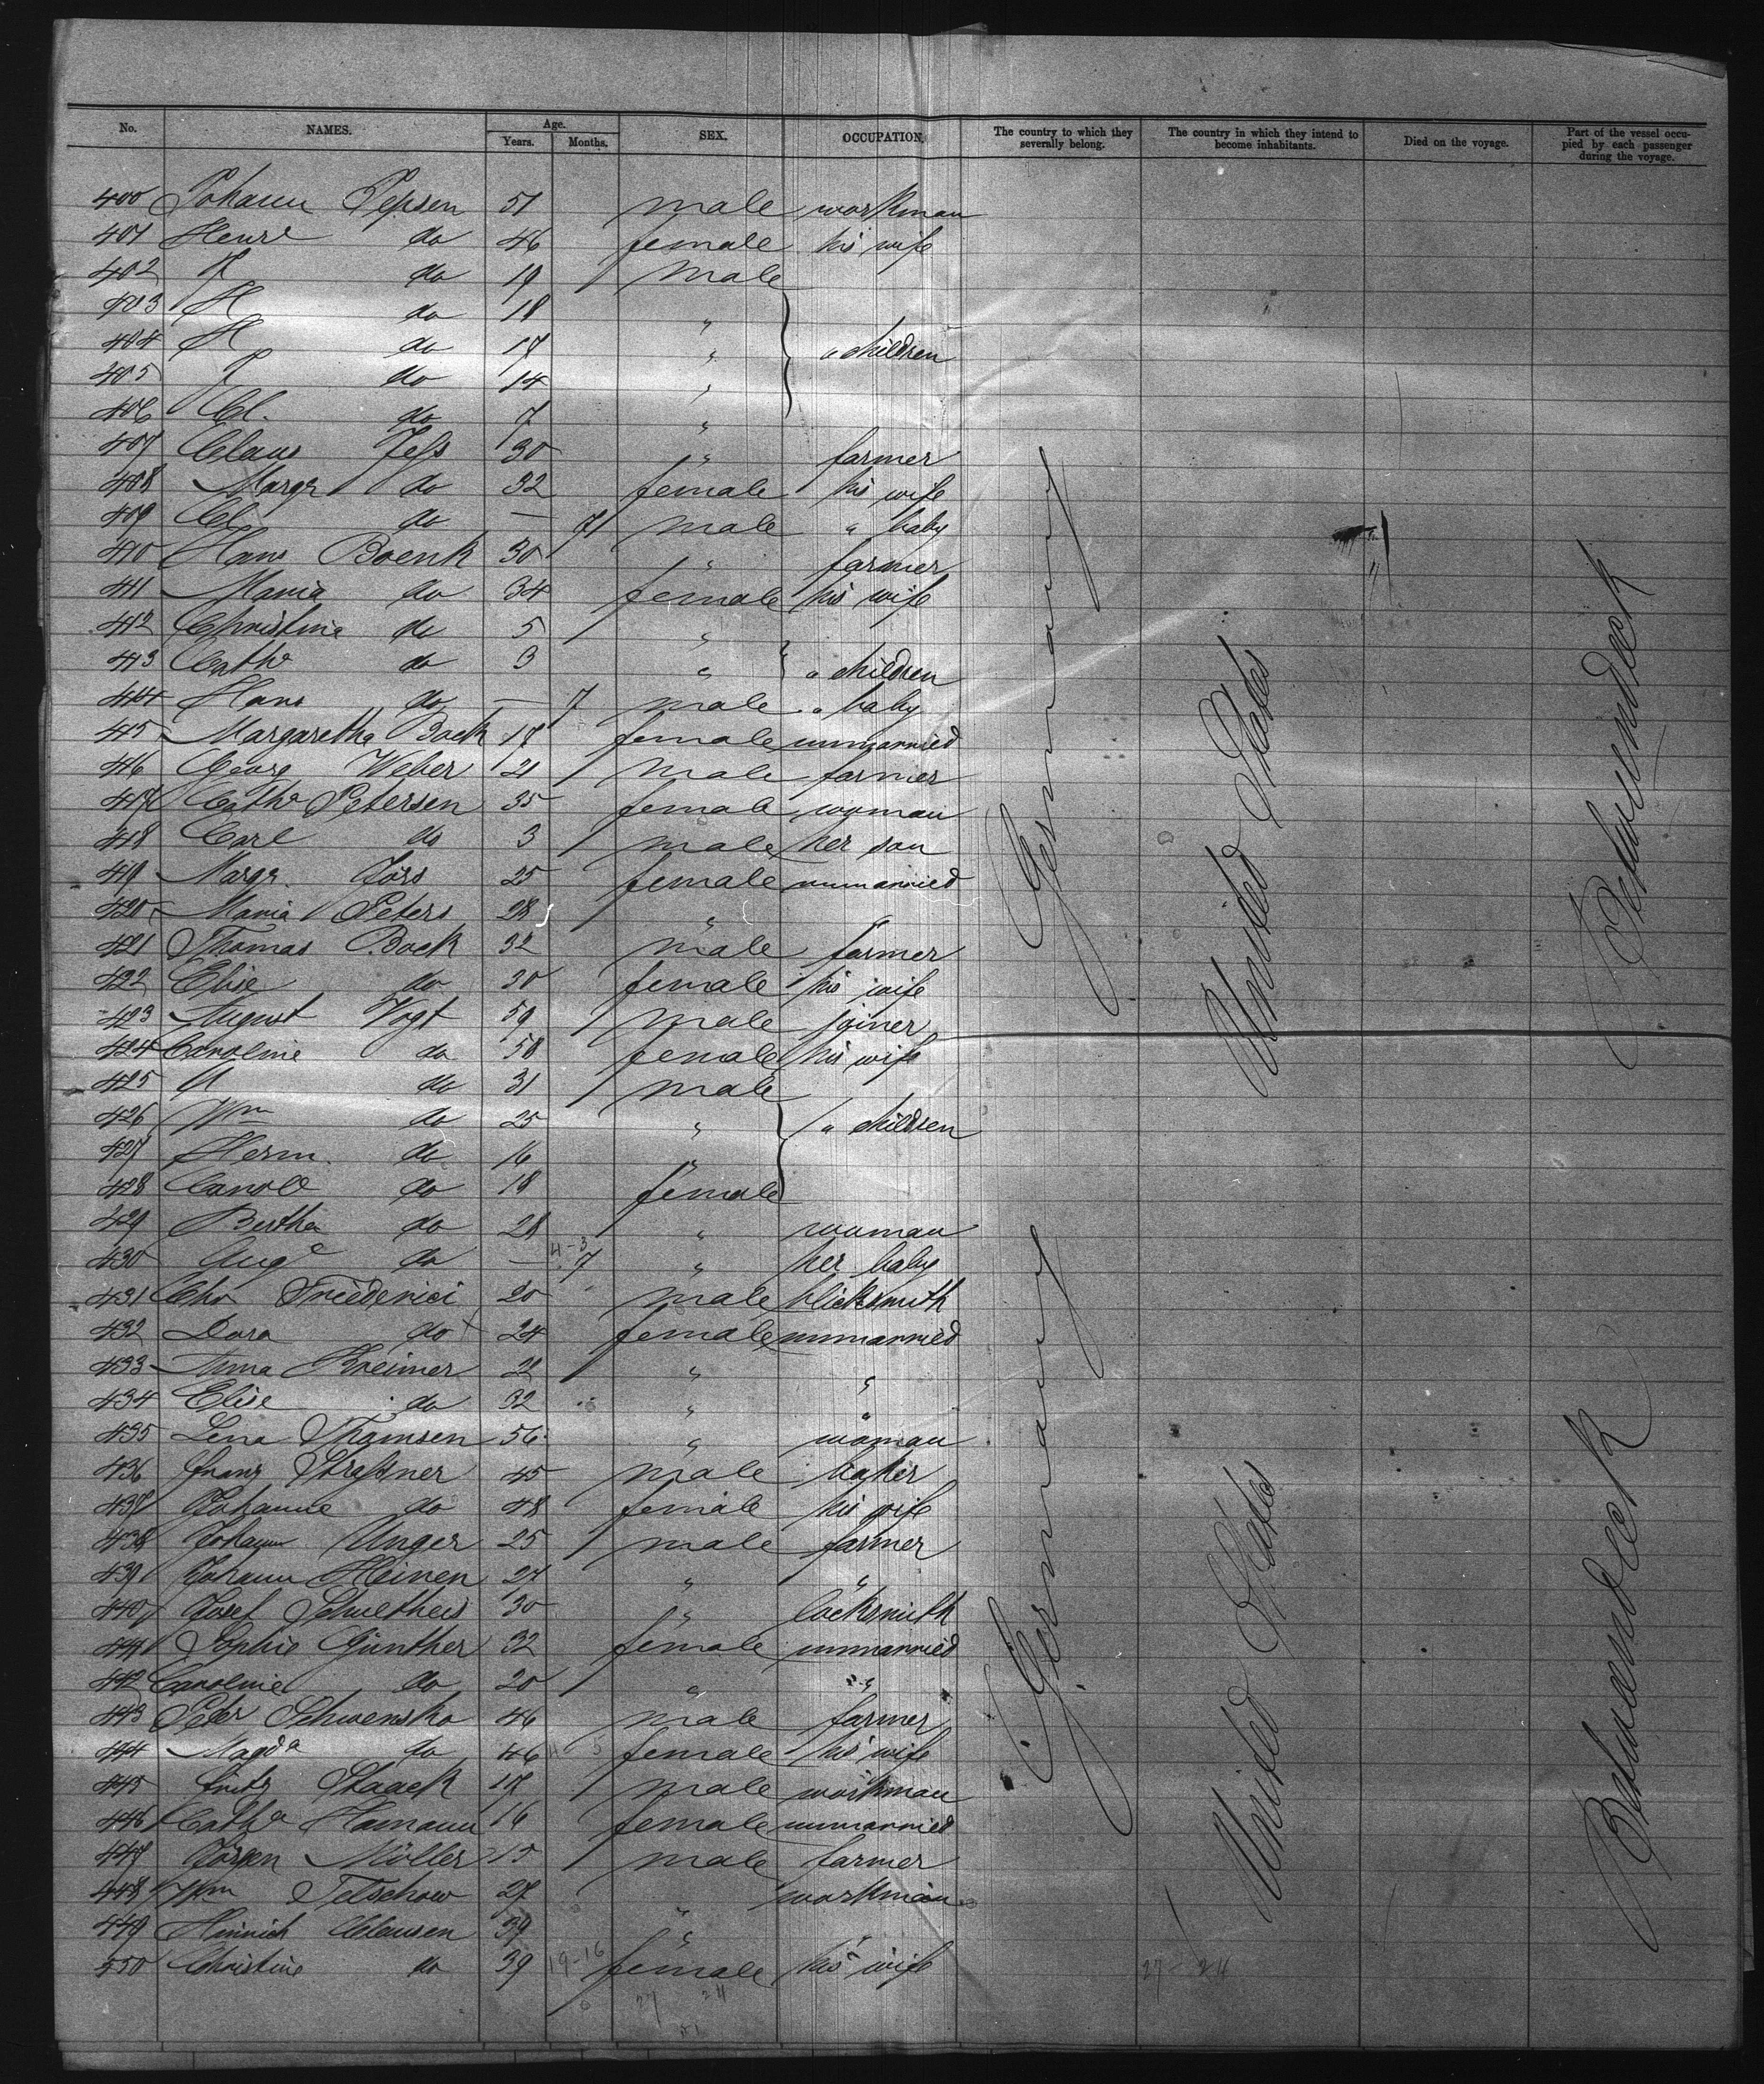 No. NAMES. Age. Years. Months. SEX. OCCUPATION. The country to which they severally belong. The country in which they intend to become inhabitants. Died on the voyage. Part of the vessel occupied by each passenger during the voyage.
400 Johann Jepsen 51 male workman
401 Henr. do 46 female his wife
402 J do 19 male
403 H do 18 "
404 H do 17 " " children
405 J do 14 "
406 Cl. do 7 "
407 Claus Jess 30 " farmer
408 Margr do 32 female his wife
409 Cl do — 7 male " baby
410 Hans Boenk 30 " farmer
411 Maria do 34 female his wife
412 Christina do 5 "
413 Cathe do 3 " " children
414 Hans do — 7 male " baby
415 Margaretha Bock 17 female unmarried
416 Georg Weber 21 male farmer
417 Cathe Petersen 35 female woman
418 Carl do 3 male her son
419 Margr. Jörs 25 female unmarried
420 Maria Peters 28 " "
421 Thomas Bock 32 male farmer
422 Elise do 30 female his wife
423 August Vogt 59 male joiner
424 Caroline do 58 female his wife
425 do 31 male
426 Wm do 25 " " children
427 Herm. do 16 "
428 Carol do 18 female
429 Bertha do 28 " woman
430 Auge do — 7 " her baby
431 Chr Friederici 20 male blicksmith
432 Dora do 24 female unmarried
433 Anna Kreimer 22 " "
434 Elise do 32 " "
435 Lena Thomsen 56 " woman
436 Franz Strassner 45 male baker
437 Johanne do 48 female his wife
438 Johann Unger 25 male farmer
439 Johann Heinen 24 " "
440 Josef 30 " locksmith
441 Sophie Günther 32 female unmarried
442 Caroline do 20 " "
443 Peter Schwensko 46 male farmer
444 Magda do 46 female his wife
445 Fritz Staack 17 male workman
446 Catha Hamann 16 female unmarried
447 Jörgen Möller 15 male farmer
448 Wm Telschow 27 " workman
449 Hinrich Clausen 39 "
450 Christine do 39 19-16 female his wife
27 24
27-24
Germany
United States
Betweendeck
Germany
United States
Betweendeck